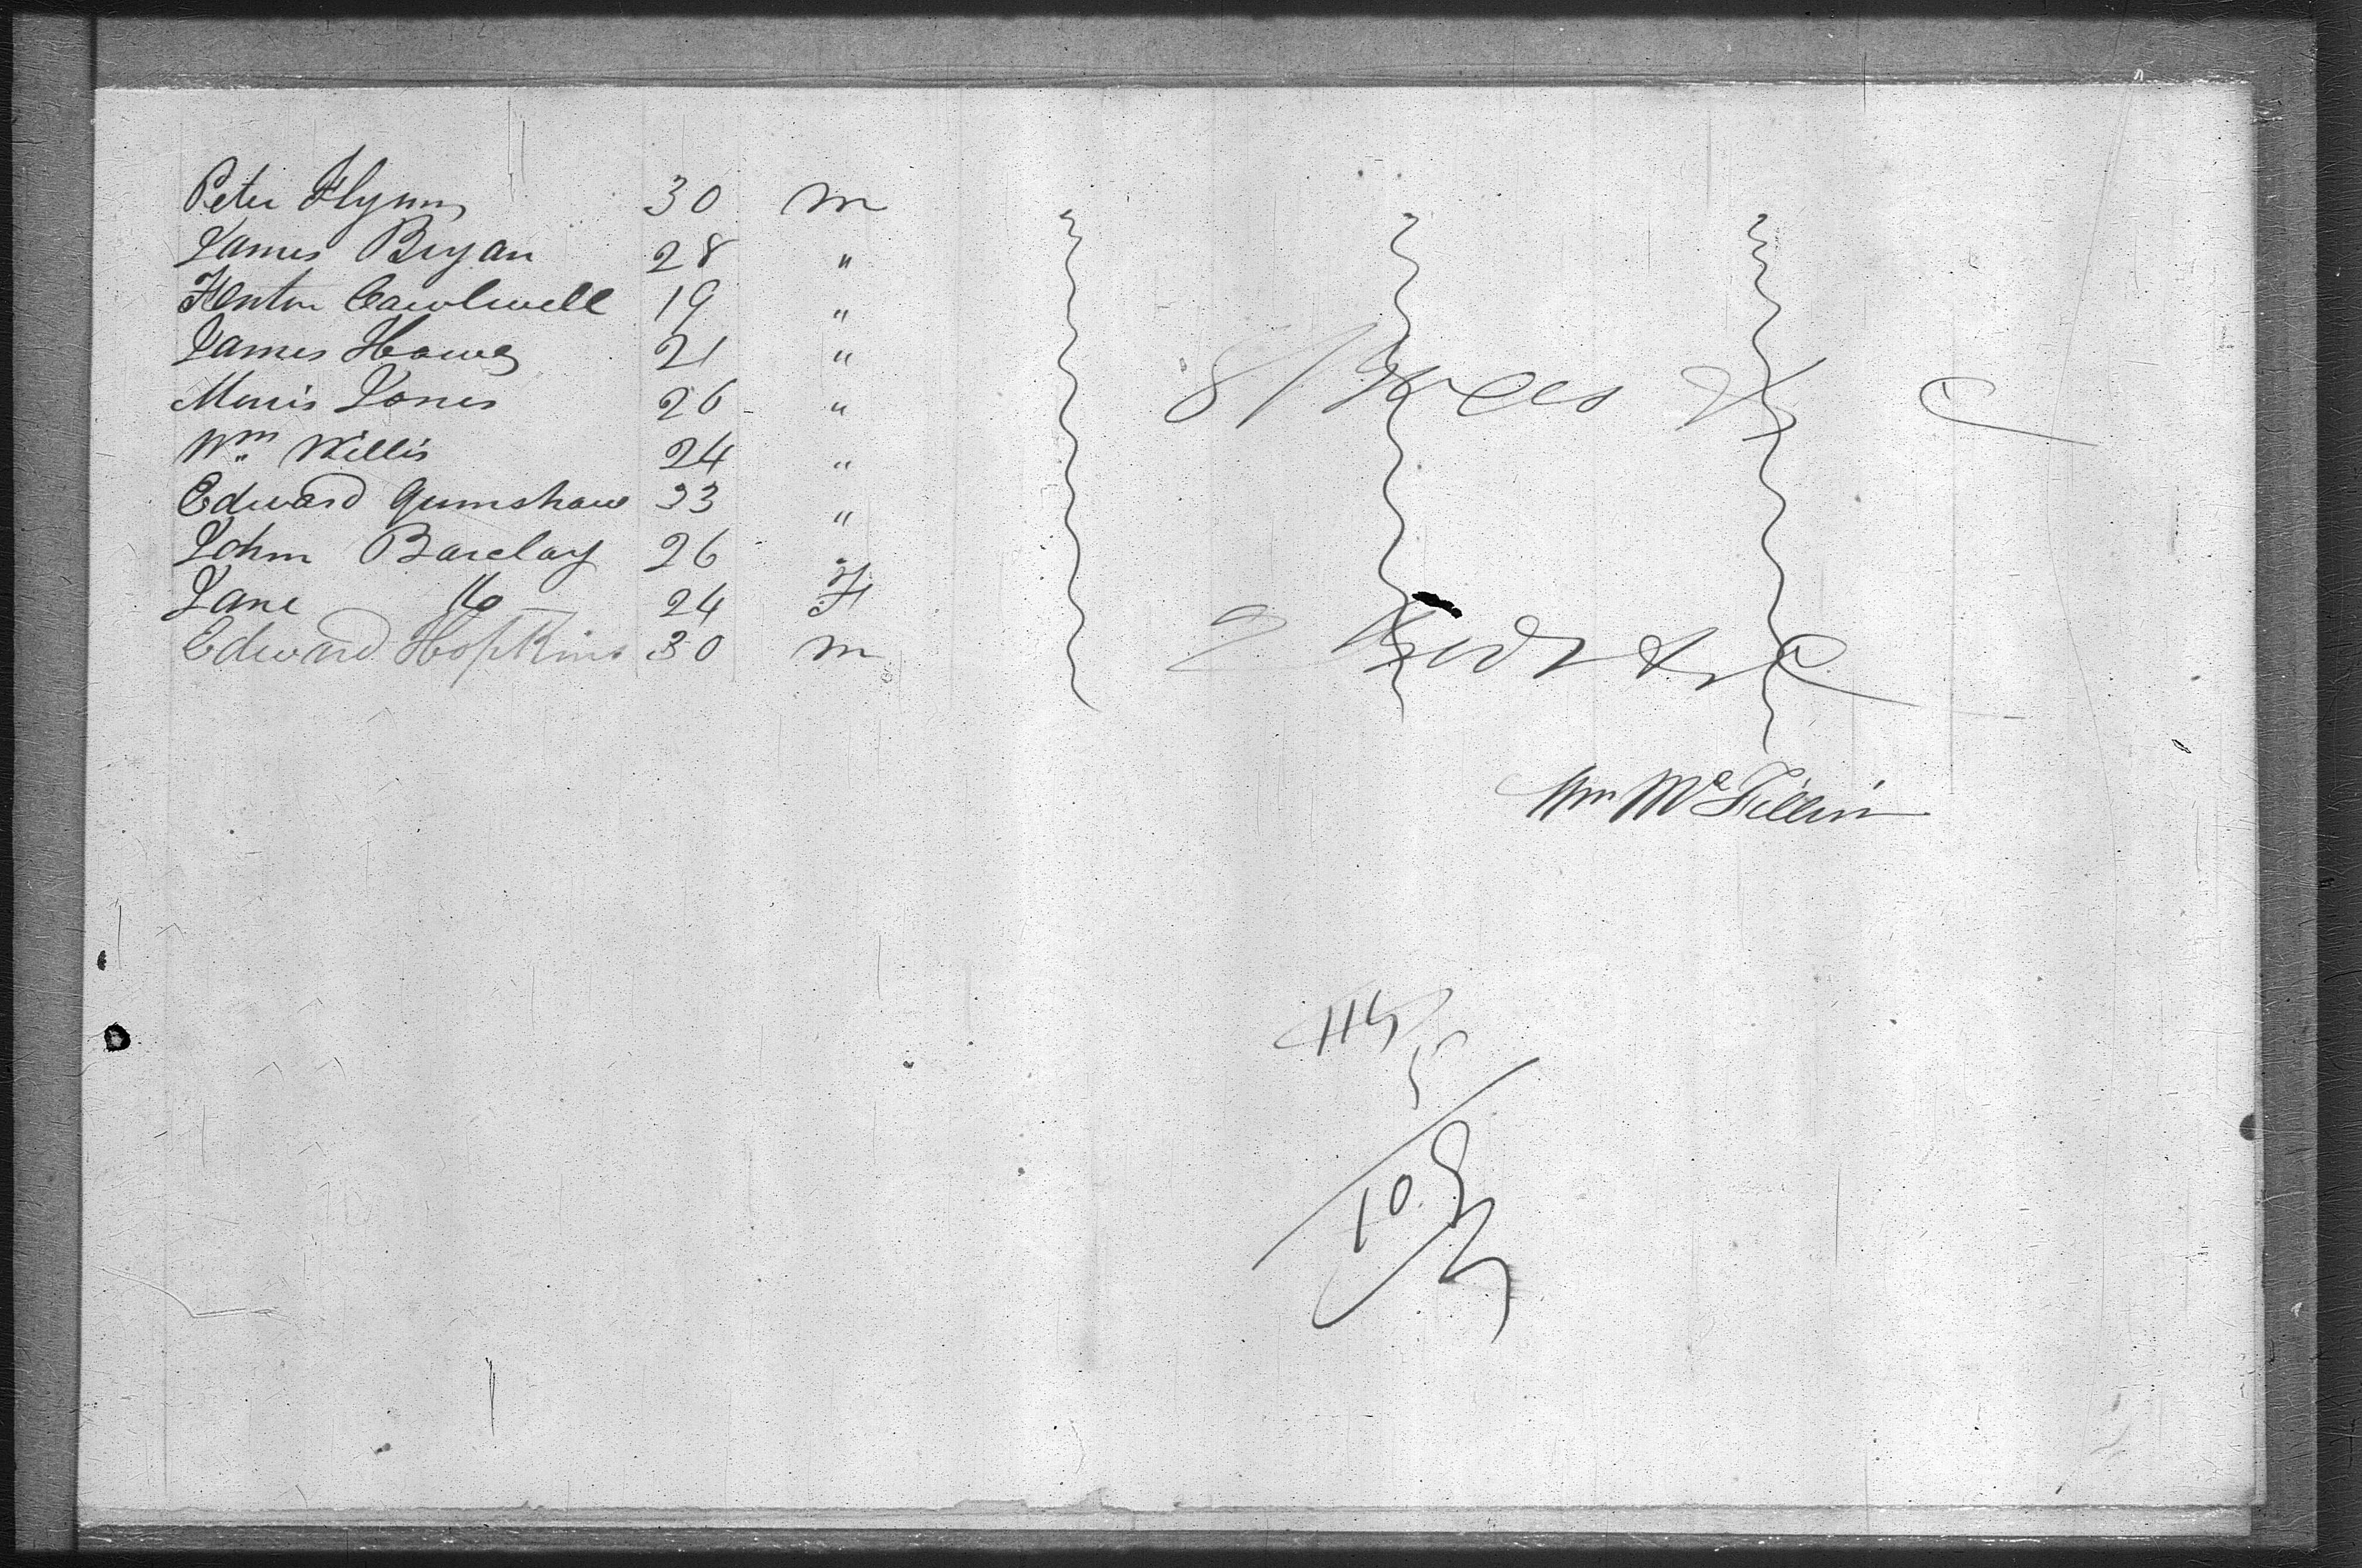 Peter Flynn 30 m
James Bryan 28 "
Fenton Cawlwell 19 "
James Howe 21 "
Morris Jones 26 "
Wm Willis 24 "
Edward Grimshaw 33 "
John Barclay 26 "
Jane Do 24 F
Edward Hopkins 30 m
Wm McFillin
114
5
109